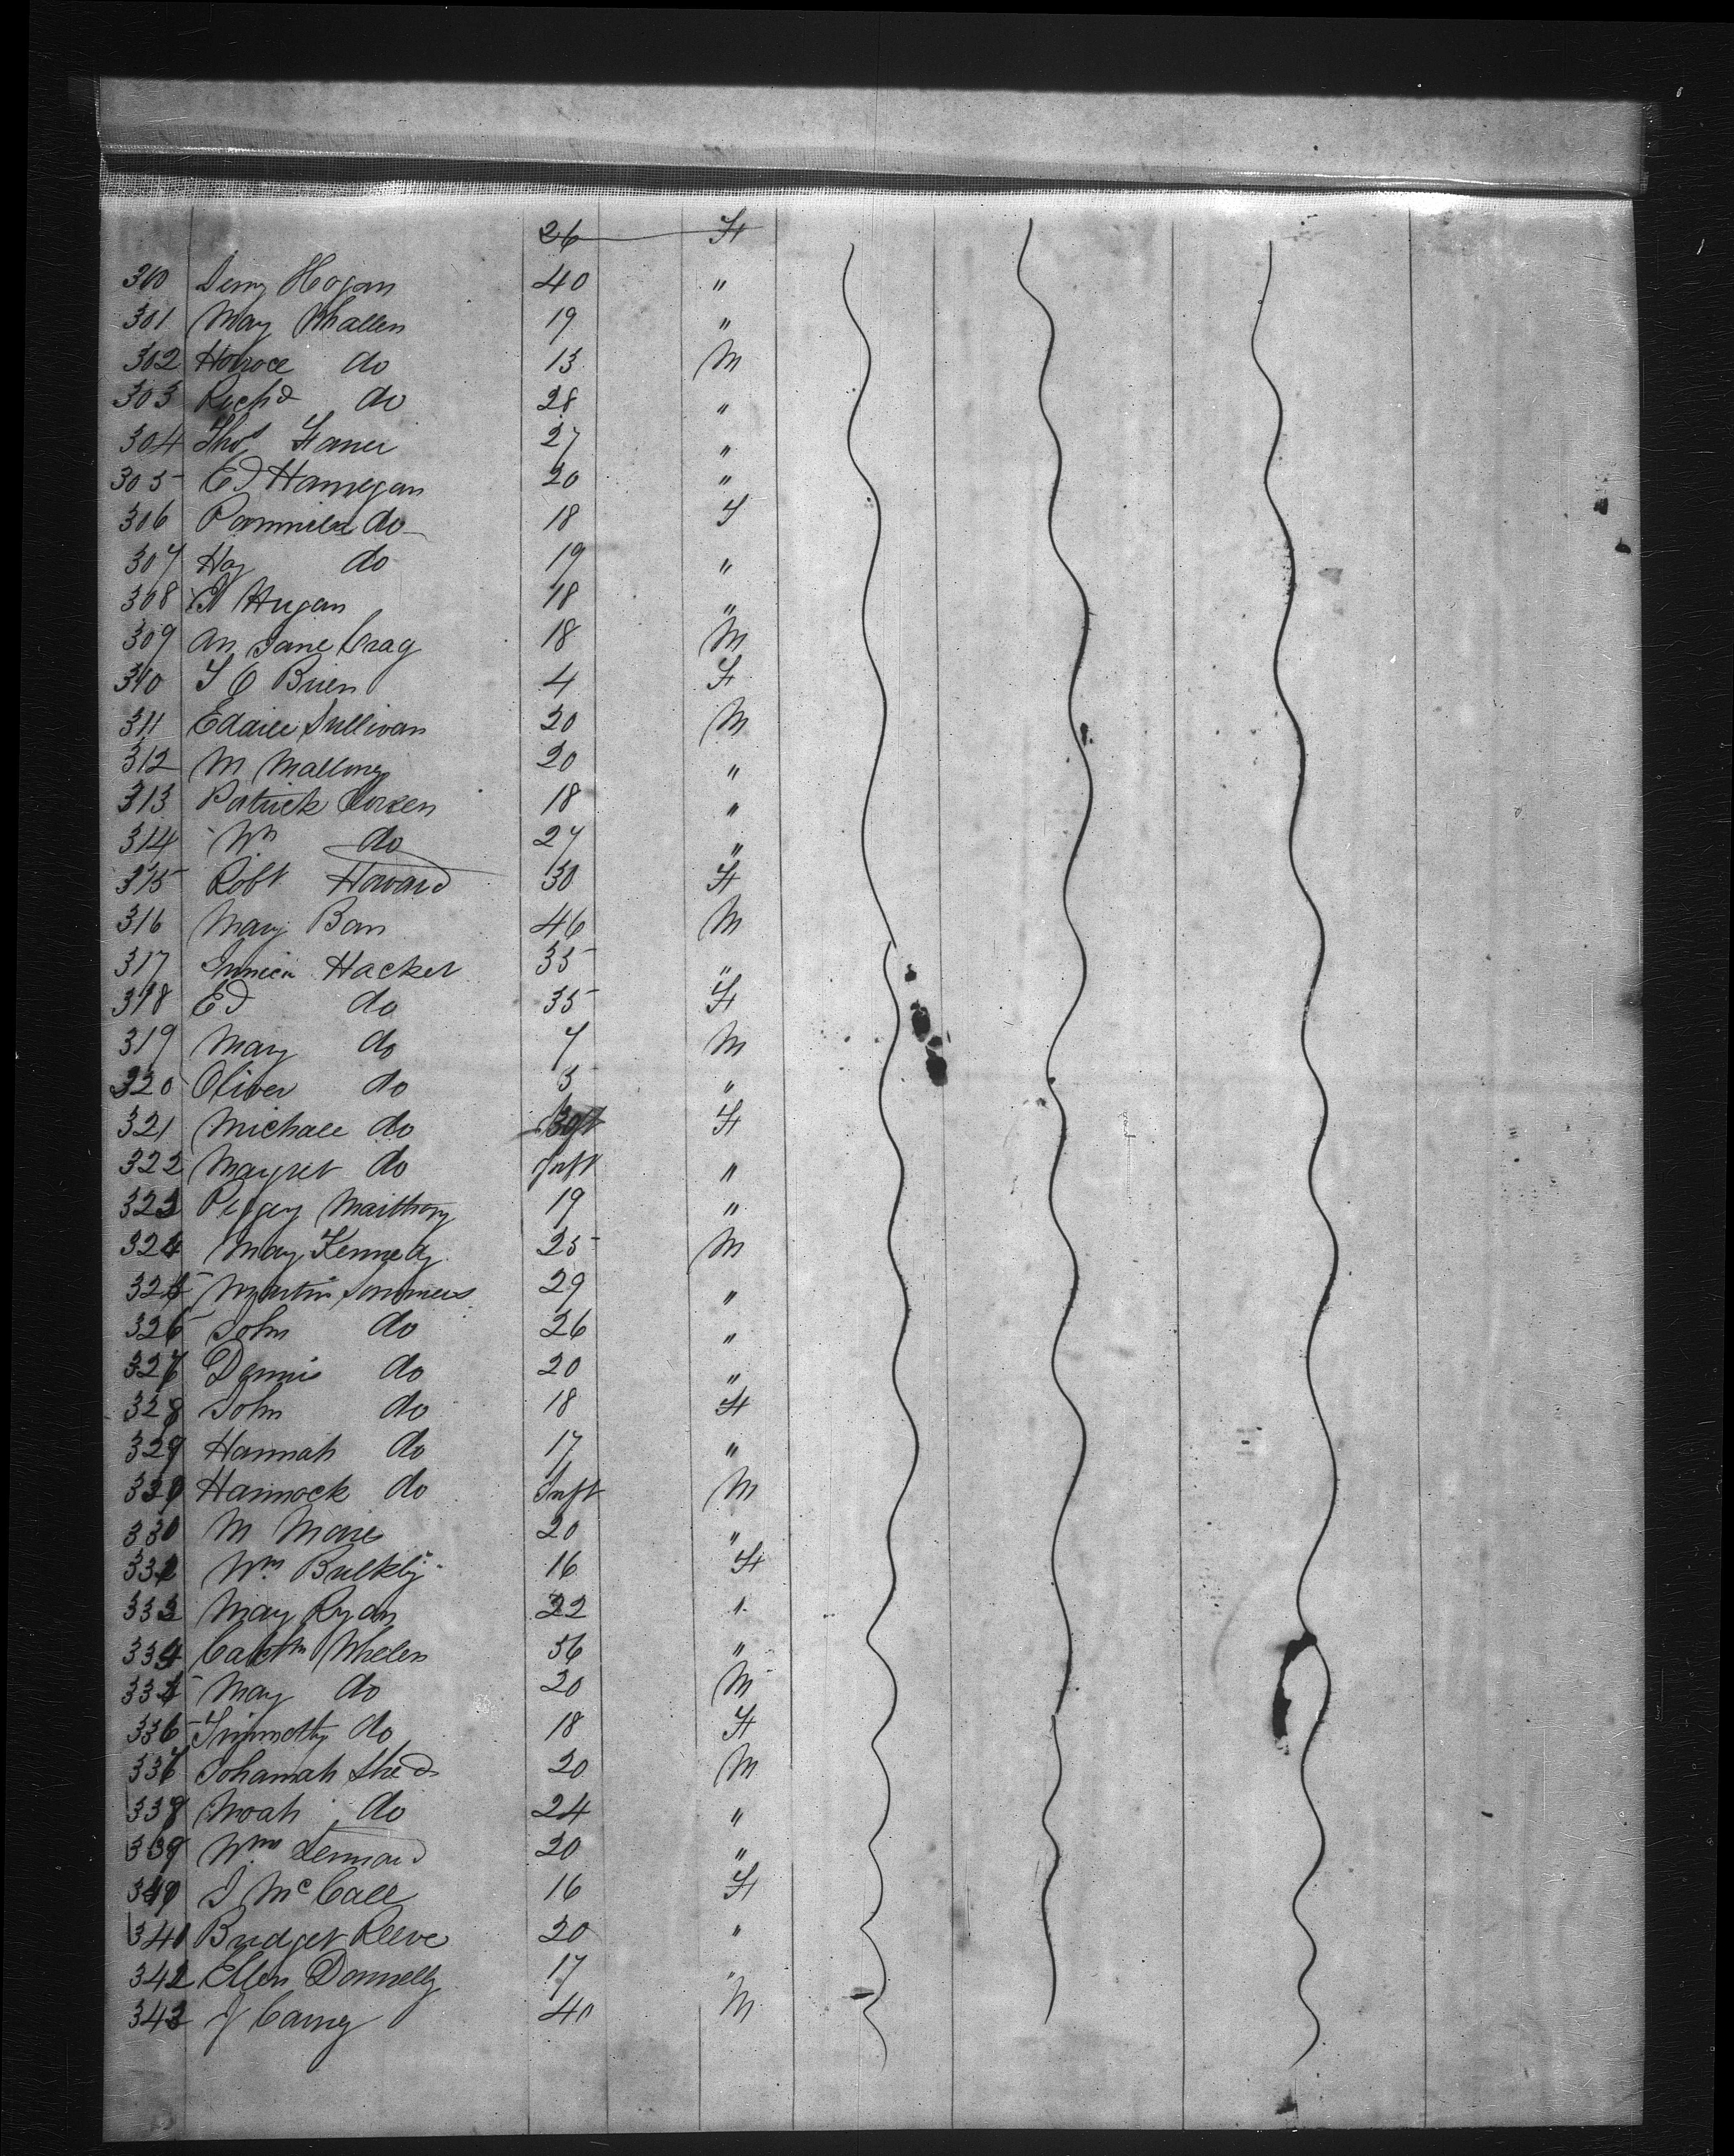 26 F
300 Jerry Hogan 40 "
301 May Whallen 19 "
302 Horoce do 13 M
303 Richd do 28 "
304 Thos 27 "
305 Ed Hannegan 20 "
306 do 18 F
307 do 19 "
308 Hugan 18 "
309 An Jane Crag 18 M
310 O Brien 4 F
311 Sullivan 20 M
312 M Mallony 20 "
313 Patrick 18 "
314 Wm do 27 "
315 Robt Howard 30 F
316 Mary Ban 46 M
317 Hacket 35 "
318 Ed do 35 F
319 Mary do 7 M
320 Oliver do 5 "
321 Michael do F
322 Margret do Inft "
323 Peggy 19 "
324 May Kennedy 25 M
325 Martin Sommers 29 "
326 John do 26 "
327 Dennis do 20 "
328 John do 18 F
329 Hannah do 17 "
Hannock do Inft M
330 M 20 "
Wm Bulkly 16 F
333 May Ryan 22 "
334 Whelen 56 "
335 May do 20 M
336 Timmothy do 18 F
337 Johannah Shed 20 M
338 Noah do 24 "
339 Wm Lennard 20 "
J McCall 16 F
Bridget Reeve 20 "
342 Ellen Donnelly 17 "
343 J Carney 40 M